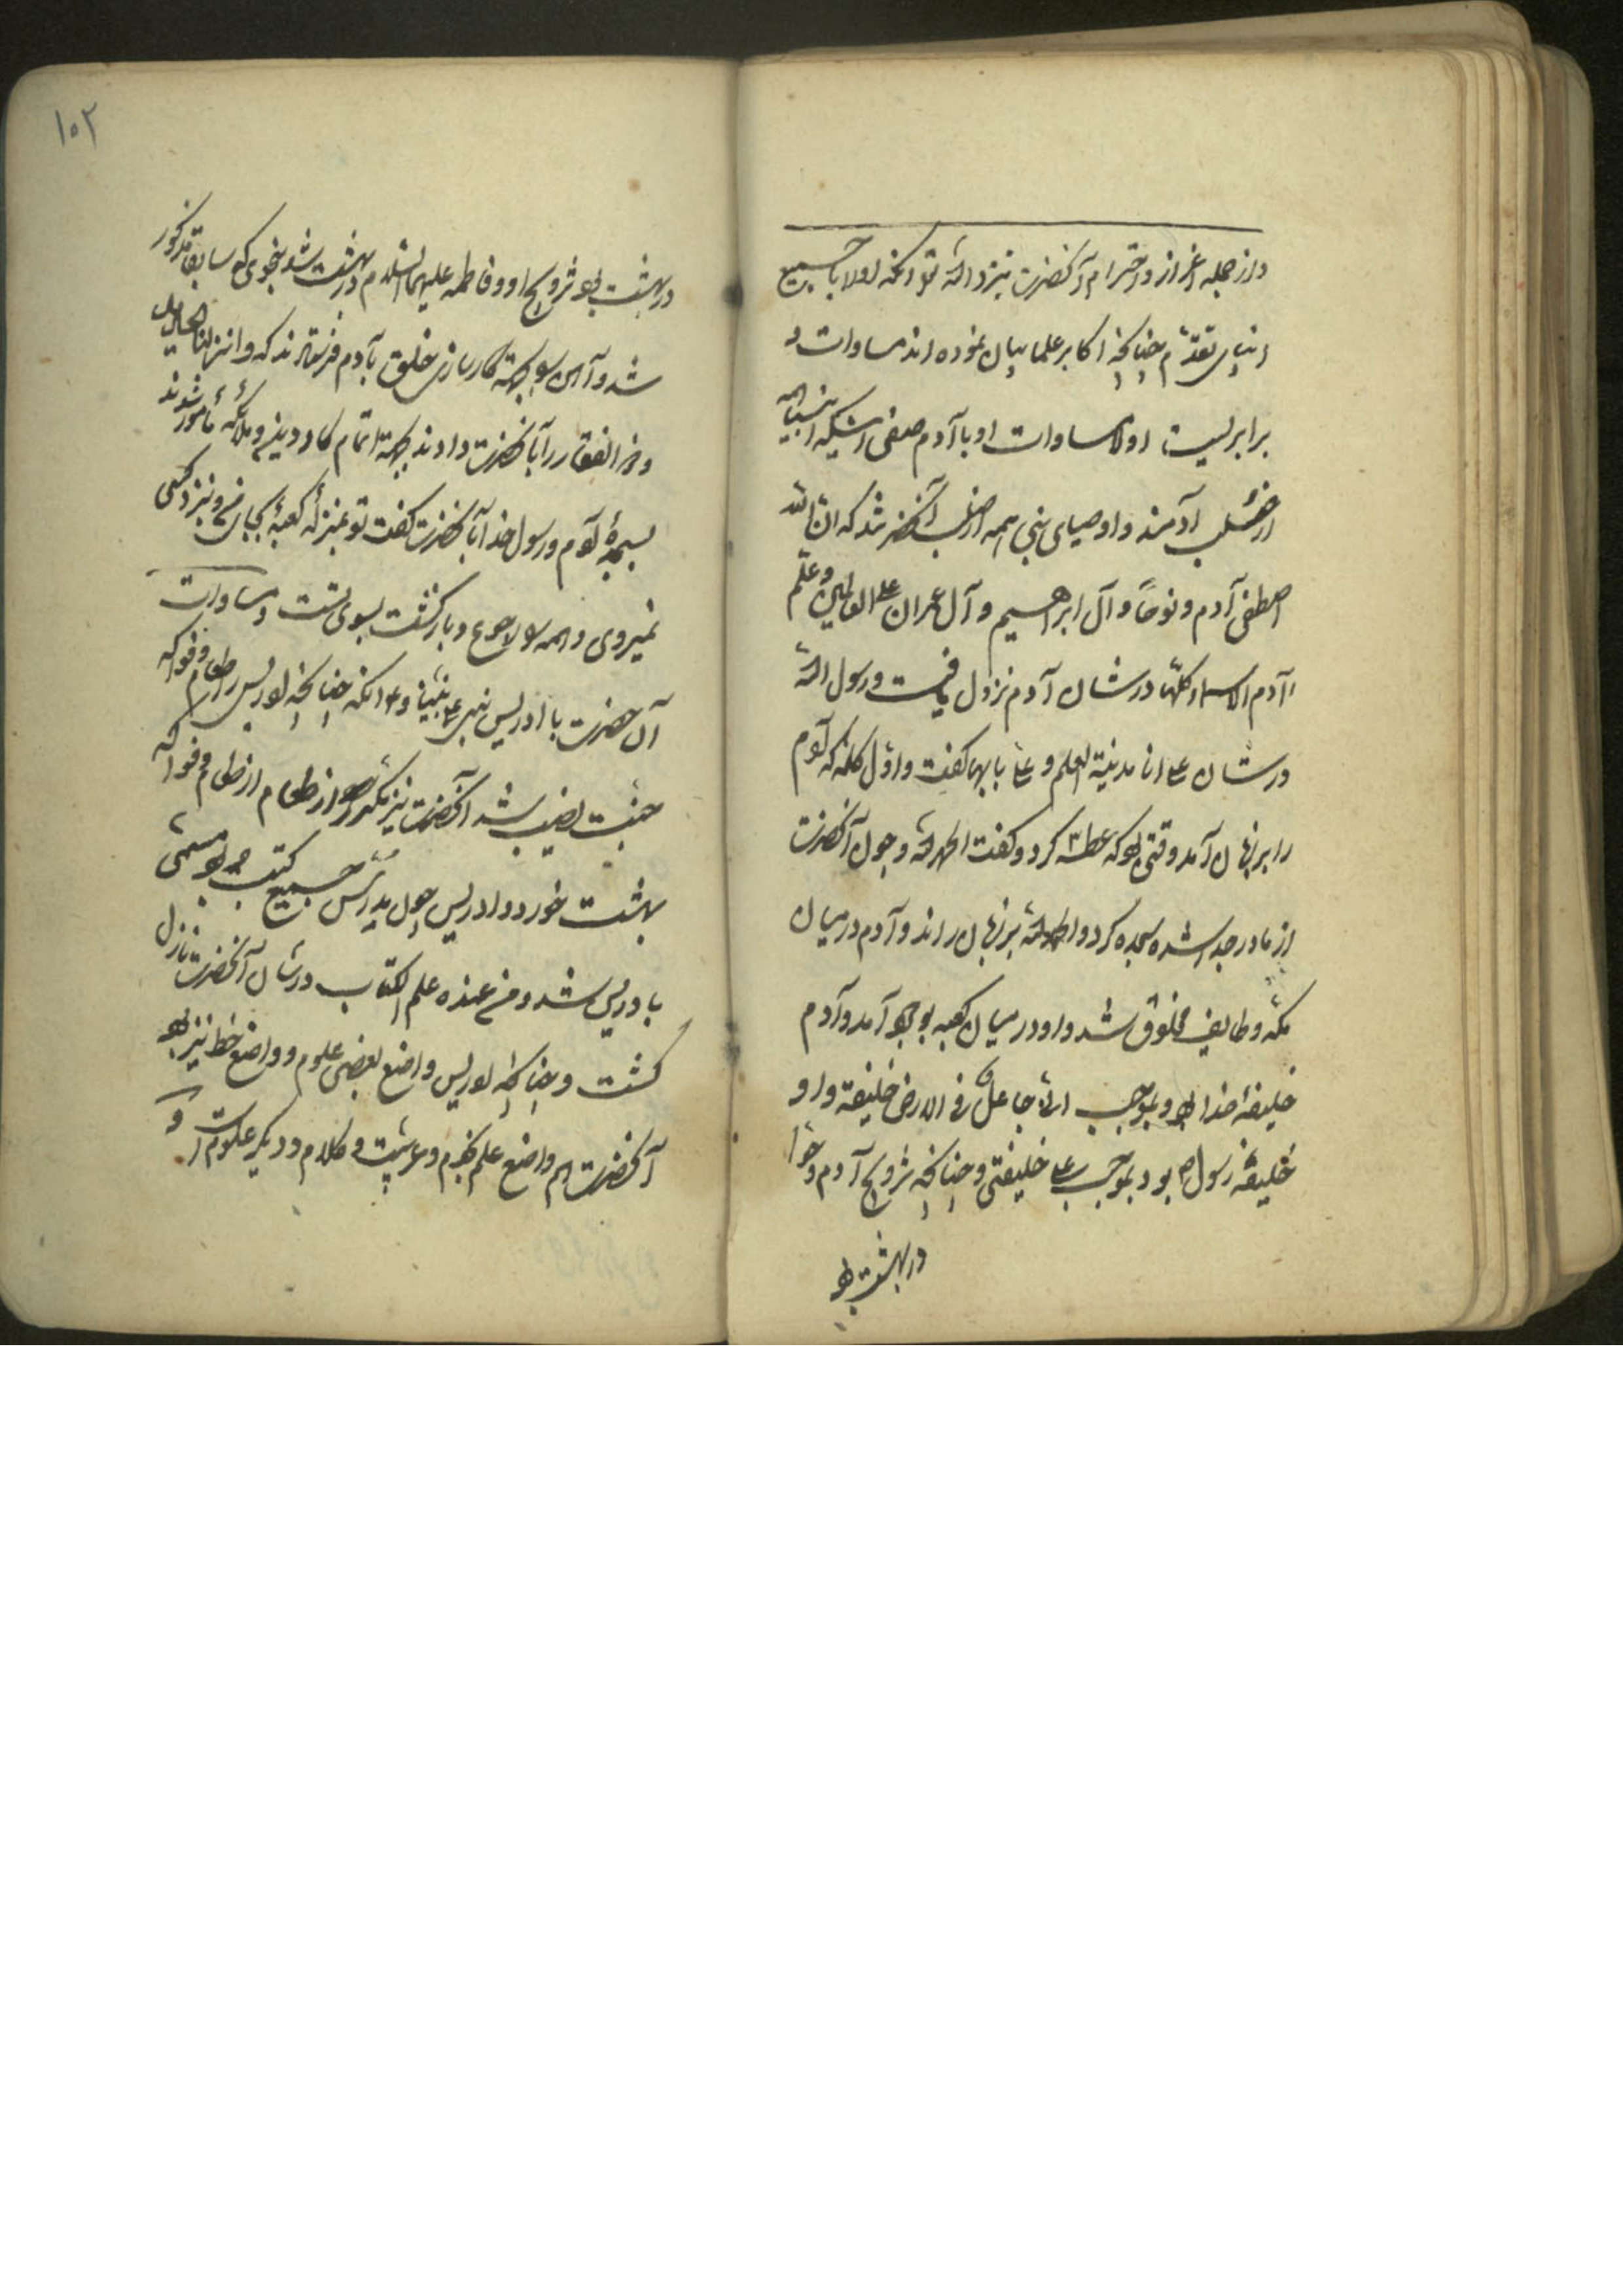 واز جمله اعزاز و احترام آنحضرت نیز نزد الله تع آنکه اولا با جمیع
انبیای تقدم چنانچه اکابر علما بیان نموده اند مساوات و
برابریست اولا مساوات او با آدم صفی انبیا همه
از صلب آدمند و اوصیای نبی همه از صلب آنحضرتند که ان الله
اصطفی آدم و نوحاً و آل ابراهیم و آل عمران علی العالمین وعلم
آدم الاسماء کلها در شان آدم نزول یافت و رسول الله
در شان علی انا مدینة العلم و علی بابها گفت و اول کلمه که آدم
را بر زبان آمد وقتی بود که عطسه کرد و گفت الحمد لله و چون آنحضرت
از مادر جدا شده سجده کرد و الحمد لله بر زبان راند و آدم در میان
مکه و طایف مخلوق شد و او در میان کعبه بوجود آمد و آدم
خلیفهٔ خدا بود بموجب انی جاعل فی الارض خلیفة و او
خلیفهٔ رسول ص بود بموجب علی خلیفتی و چنانچه تزویج آدم و حوا
در بهشت بود
۱۰۲
در بهشت بود تزویج او و فاطمه علیهما السلام در بهشت شد بنحوی که سابقا مذکور
شد و آهن بجهة کارسازی خلق بآدم فرستادند که و انزلنا الحدید
و ذو الفقار را بآنحضرت دادند بجهة اتمام کار دین و ملائکه مأمور شدند
بسجدهٔ آدم و رسول خدا بآنحضرت گفت تو بمنزلهٔ کعبهٔ بجایی و نزد کسی
نمیروی و همه را رجوع و بازگشت بسوی تست و مساوات
آن حضرت با ادریس نبی علی نبینا و ع آنکه چنانچه ادریس را طعام و فواکه
جنت نصیب شد آنحضرت نیز مکرر از طعام و فواکه
بهشت خورد و ادریس چون مدرس جمیع کتب بود مسمی
بادریس شد و من عنده علم الکتاب در شان آنحضرت نازل
گشت و چنانچه ادریس واضع بعضی علوم و واضع خط نیز بود
آنحضرت هم واضع علم نجوم و عربیت و کلام و دیگر علومست و